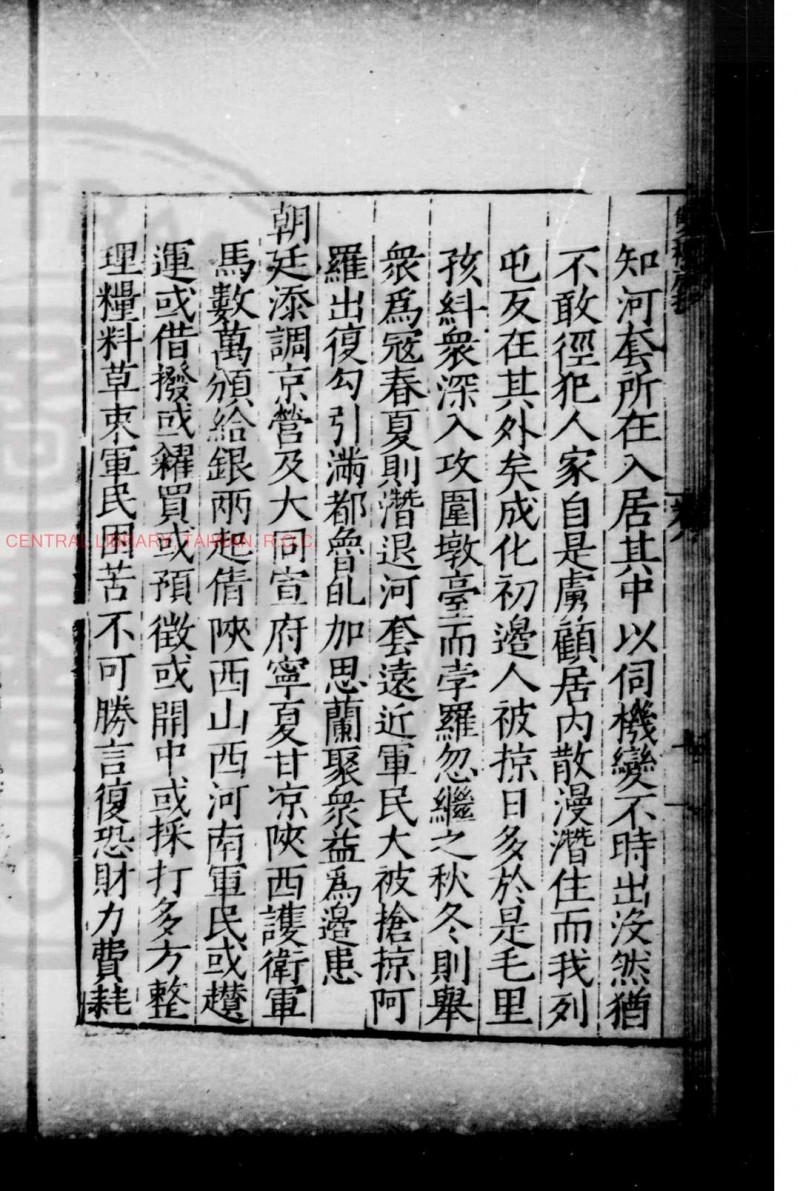 知河套所在入居其中以伺機變不時出沒然猶
不敢徑犯人家自是虜顧居內散漫潛住而我列
屯反在其外矣成化初邊人被掠日多於是毛里
孩糾衆深入攻圍墩臺而孛羅忽繼之秋冬則舉
衆爲寇春夏則潛退河套遠近軍民大被搶掠阿
羅出復勾引滿都魯癿加思蘭聚衆益爲邊患
朝廷添調京營及大同宣府寧夏甘凉陝西護衛軍
馬數萬頒給銀兩起倩陝西山西河南軍民或趲
運或借撥或糴買或預徵或開中或採打多方整
理糧料草束軍民困苦不可勝言復恐財力費耗
CENTRAL LIBRARY, TAIWAN, R.O.C.